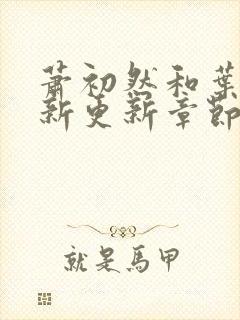 萧初然和葉
新更新章節
就是馬甲